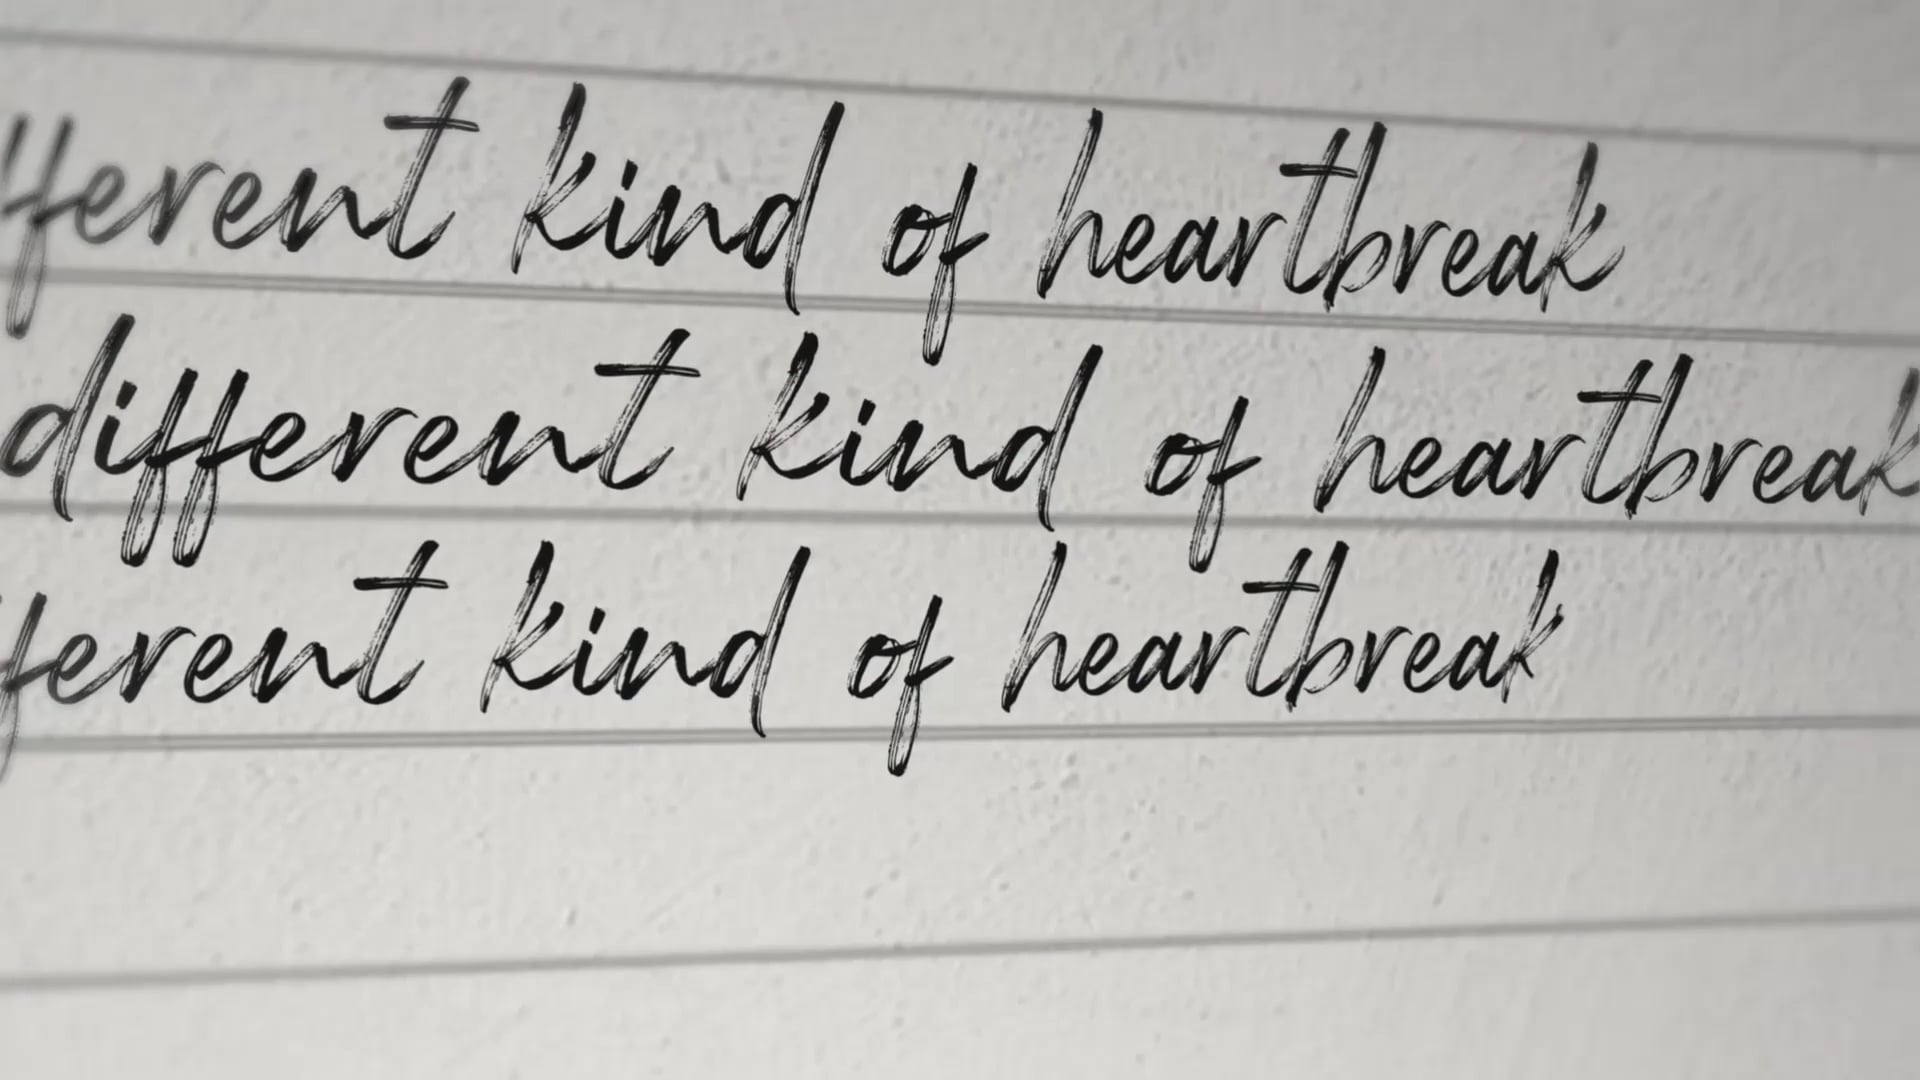 fferent kind of heartbreak
different kind of heartbreak
ferent kind of heartbreak